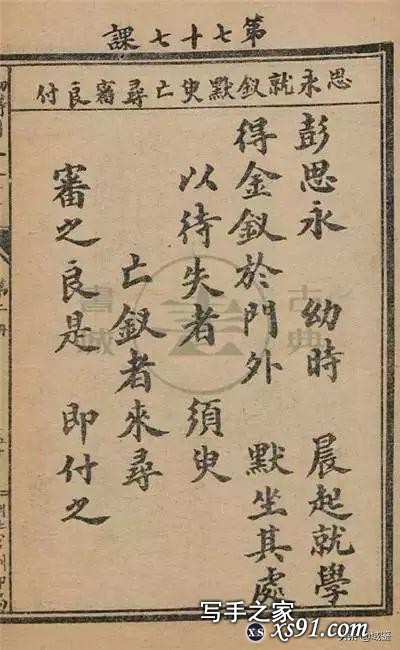 第七十七課
思永就釵默臾亡尋審良付
彭思永 幼時 晨起就學
得金釵於門外 默坐其處
以待失者 須臾
亡釵者來尋
審之良是 即付之
古典
書城
写手之家
xs xs91.com